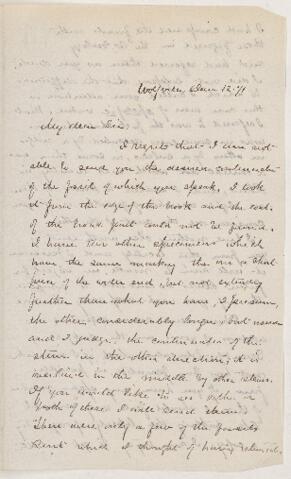 Wolfville, June 12. 71
My dear Sir
I regret that I am not
able to send you the desired continuation
of the fossil of which you speak, I took
it from the edge of the brook and the rest
of the broad part could not be found.
I have two other specimens which
have the same marking the one a short
piece of the outer end but not extending
further than what you have, I presume,
the other, considerably longer, but narrow
and I judge, the continuation of the
stem in the other direction; it is
in the middle by other stems.
If you would like to see either or
both of these I will send them.
There were only a few of the fossils
sent which I thought of having returned.